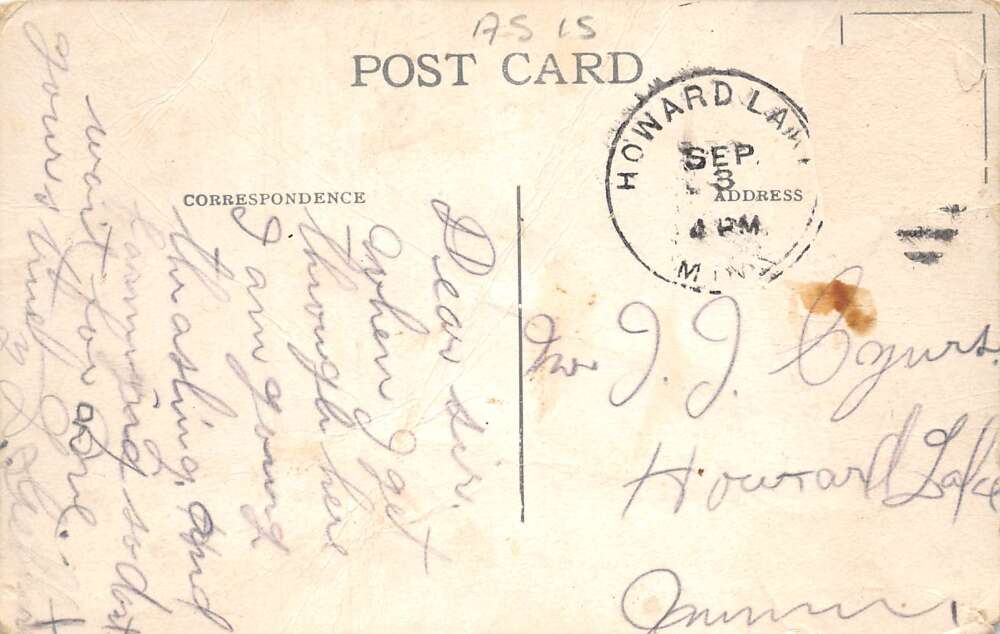 AS IS
POST CARD
HOWARD LAK
SEP
3
4 PM
MINN
CORRESPONDENCE
ADDRESS
Dear sir.
When I get
through here
I am going
thrashing, and
so dont
wait for me.
yours truly
J. J.
Howard Lake
Minn.